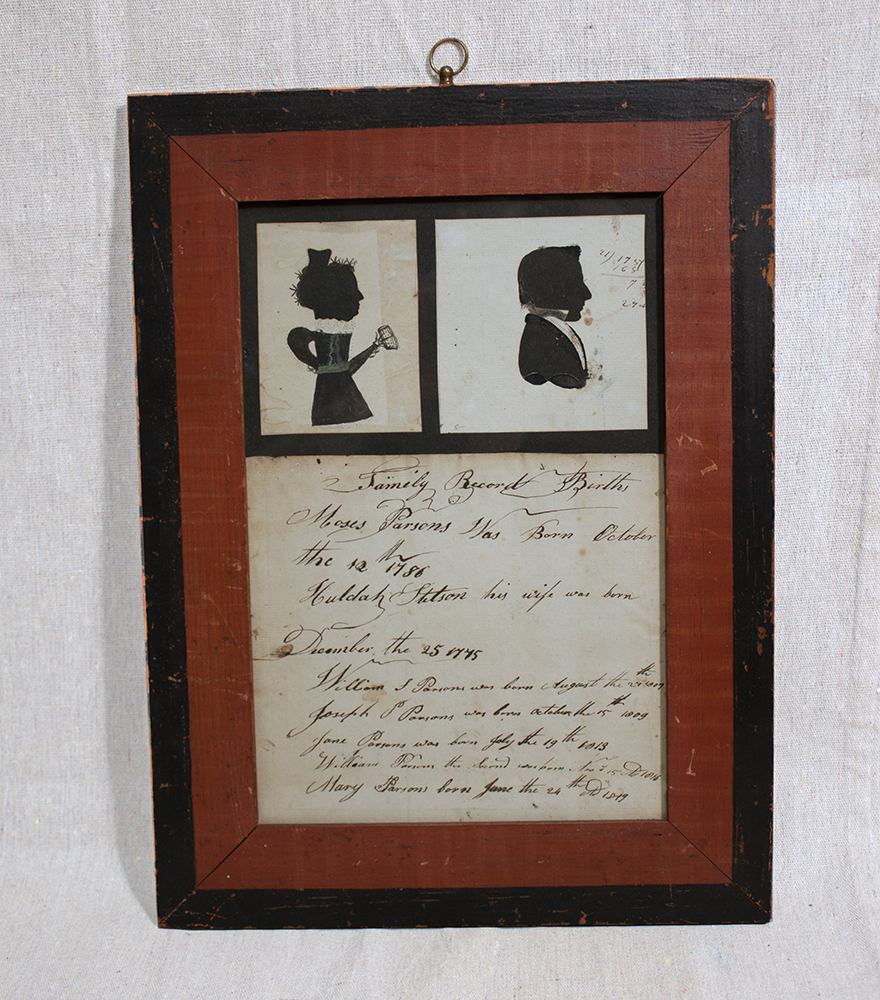 21/175
125
7
Family Record Births
Moses Parsons Was Born October
the 12th 1786
Huldah Stetson his wife was born
December the 25 1775
William S Parsons was born August the
Joseph P Parsons was born October the 15th 1809
Jane Parsons was born July the 19th 1813
William Parsons the Second was born Nov 15 AD 1816
Mary Parsons born June the 24th AD 1819